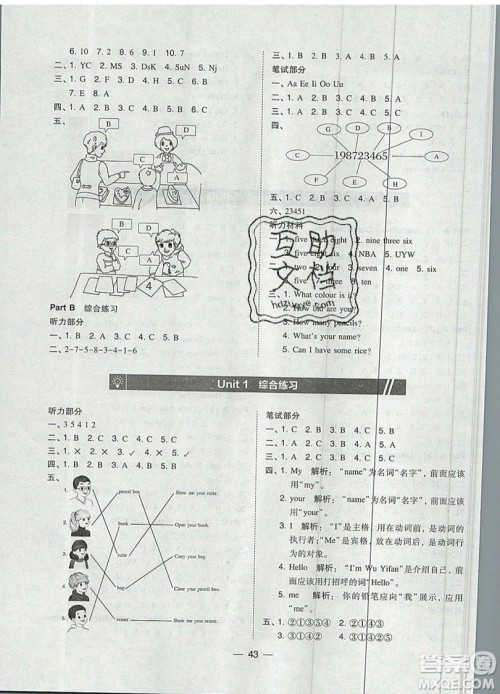 6. 10　7. 2　8. 6　9. 1　10. 7
二、1. YC　2. MS　3. DaK　4. SuN　5. NJ
三、1. G　2. F　3. D　4. B　5. C　6. H
7. E　8. A
四、1. A　2. B　3. C　4. A　5. C
五、
B
D
C
A
D
B
C
A
4
Part B　综合练习
听力部分
一、1. B　2. A　3. A　4. B　5. B
二、2-7-5-8-3-4-1-6
三、1. B　2. B　3. A　4. B　5. A
笔试部分
一、Aa Ee Ii Oo Uu
二、1. A　2. B　3. C　4. A　5. C
三、1. A　2. B　3. A　4. B　5. A
四、
D
B
G
I
C
198723465
A
F
E
H
五、1. C　2. C　3. A　4. B　5. C
六、23451
听力材料
2. nine three six
4. NBA　5. UYW
3. seven　4. one　5. six
7. three　8. ten
三、1. What colour is it?
2. How old are you?
3. How many pencils?
4. What's your name?
5. Can I have some rice?
互助
文档
hdzuoye.com
Unit 1　综合练习
听力部分
一、3 5 4 1 2
二、1. B　2. C　3. A　4. C　5. C
三、1. ×　2. ×　3. ✓　4. ×　5. ✓
四、1. B　2. A　3. B　4. A　5. B
五、
pencil box　Show me your ruler.
book　Open your book.
ruler　Carry your bag.
bag　Close your pencil box.
eraser　Show me your eraser.
笔试部分
一、1. B　2. C　3. A　4. C　5. C
二、1. C　2. B　3. A　4. B　5. C
三、1. A　2. A　3. A　4. B　5. C
四、1. My　解析：“name”为名词“名字”，前面应该
用“my”。
2. your　解析：“name”为名词“名字”，前面应该
用“your”。
3. I　解析：“I”是主格，用在动词前，是动词的
执行者；“Me”是宾格，放在动词后，是动词
行为的对象。
4. Hello　解析：“I'm Wu Yifan”是介绍自己，前
面应该用打招呼的词“Hello”。
5. me　解析：你的铅笔应向“我”展示，动词后
用宾格。
五、1. ②①③⑤④　2. ②①④③⑤
3. ①③④②　4. ③①④②
43
答案圈
MXQE.COM